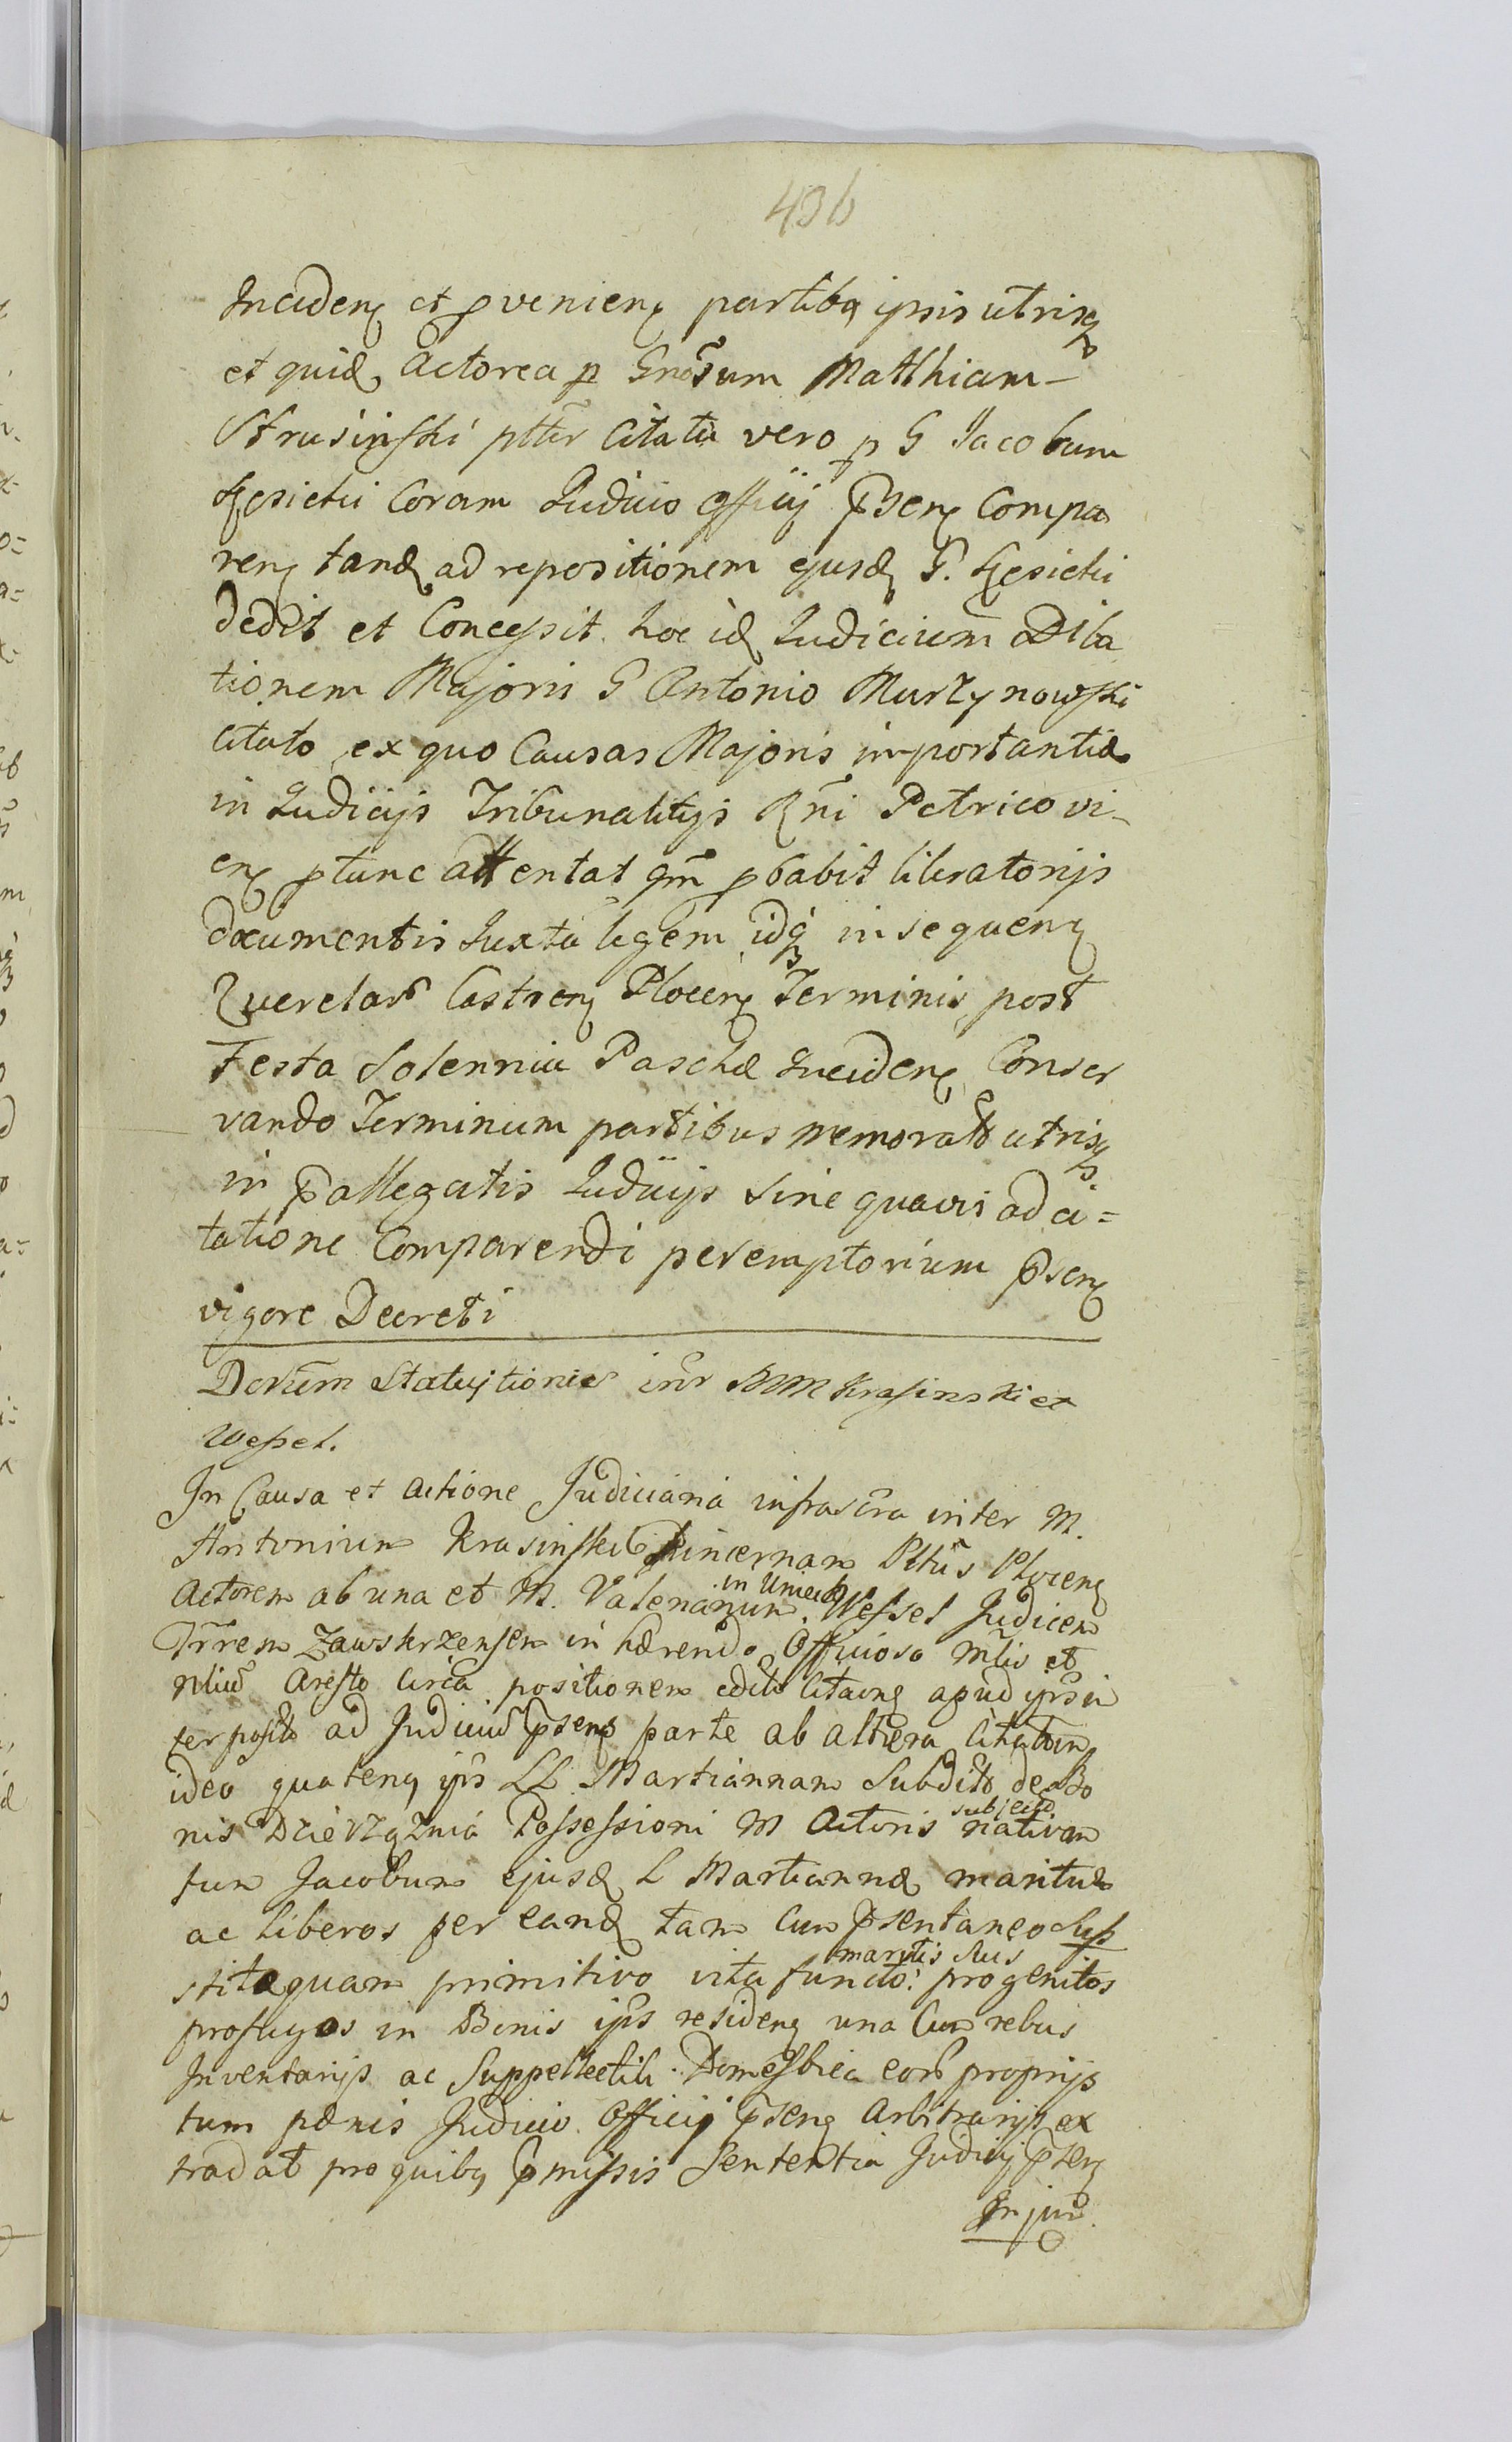 436
Inciden et pvenien partibq ipsis utrisq
et quid Actorea p Gnosum Matthiam-
Strusinski pltter Citata vero p G Jacobum
Coram Judicio Officij Psen Compa
ren tand ad repositionem ejusd G.
dedit et Concessit hoc id Judicium Dila
tionem Majoris G Antonio Murzynowski
citato ex quo Causas Majoris importantiæ
in Judicijs Tribunalitijs Rni Petricovi-
en ptunc attentat qm pbabit literatorijs
documentis Juxta legem idq in sequen
Querelar Castren Plocen Terminis post
Festa Solennia Paschæ Inciden Conser
vando Terminum partibus memorat utrisq
in pallegatis Judicijs Sine quavis adci=
tatione Comparendi peremptorium psen
vigore Decreti
Decretum Statuitionis intr MM Krasinski et
Wessel.
In Causa et Actione Judiciaria infrascra inter M.
Antonium Krasinski Pincernam Pltus Plocen
Actorem ab una et M. Valerianum in Wessel Judicem
Trrem Zawskrzensem in hærendo Officioso Mlis et
Aresto circa positionem edito citaonq apud ipsi
terposito ad Judiciu Psens parte ab altera Citatum
ideo quatenq ips LL Martiannam Subdit de Bo
nis Dzierzążnia Possessioni M Actoris subject nativam
tum Jacobum ejusd L Martiannæ maritum
ac liberos per eand tam Cum Psentaneo Sup
stite quam primitivo vita functo: maritis suis progenitos
profugos in Bonis ips residen una Cum rebus
Inventarijs ac Suppellectili Domestica eor proprijs
tum pænis Judicio Officij Psen Arbitrarijs ex
tradat pro quibq Pmissis Sententia Judicij Psen
Injun